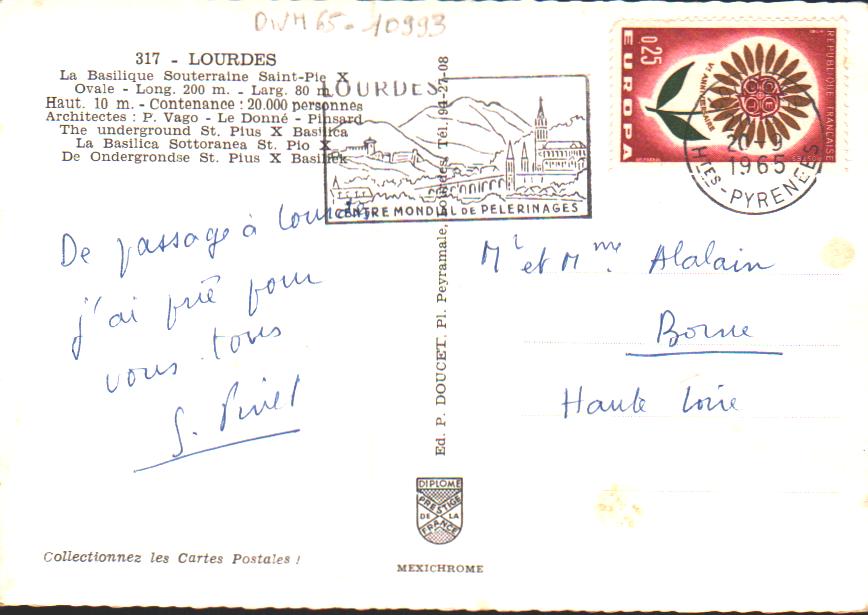 DWH65-10993
317 - LOURDES
La Basilique Souterraine Saint-Pie X
Ovale - Long. 200 m. - Larg. 80 m.
Haut. 10 m. - Contenance : 20.000 personnes
Architectes : P. Vago - Le Donné - Pinsard
The underground St. Pius X Basilica
La Basilica Sottoranea St. Pio X
De Ondergrondse St. Pius X Basiliek
LOURDES
CENTRE MONDIAL DE PELERINAGES
0,25
EUROPA
VE ANNIVERSAIRE
REPUBLIQUE FRANÇAISE
POSTES
20-9
1965
HTES-PYRENEES
De passage à Lourdes
j'ai prié pour
vous tous
Ed. P. DOUCET. Pl. Peyramale, Lourdes. Tél. 94-27-08
Mr et Mme. Alalain
Borne
Haute Loire
DIPLOME
PRESTIGE
DE LA
FRANCE
Collectionnez les Cartes Postales !
MEXICHROME